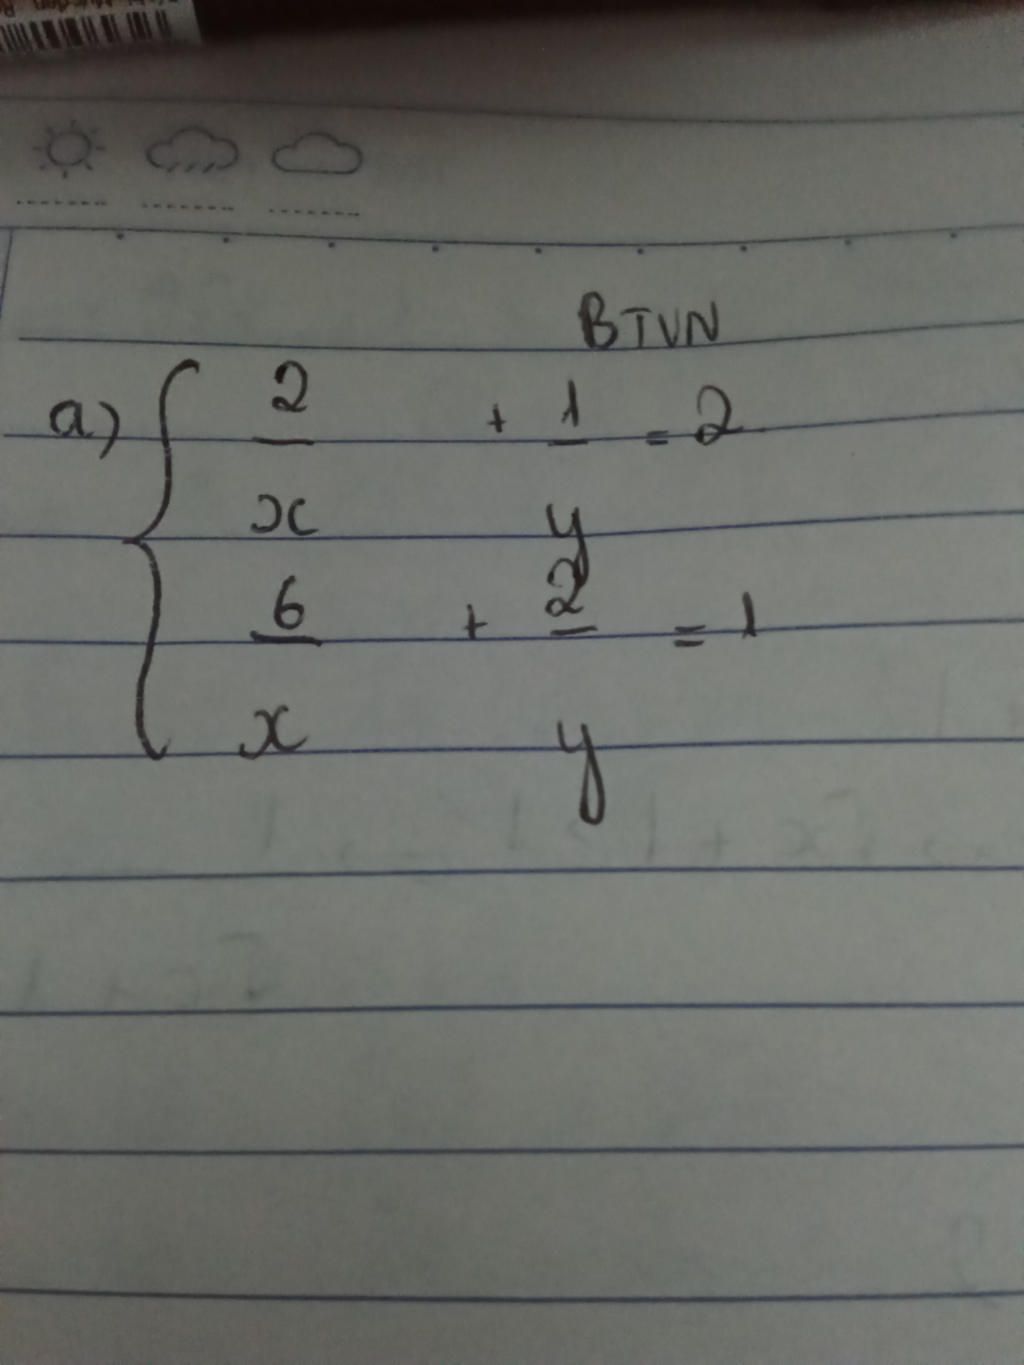 BTVN
a) { 2/x + 1/y = 2
6/x + 2/y = 1